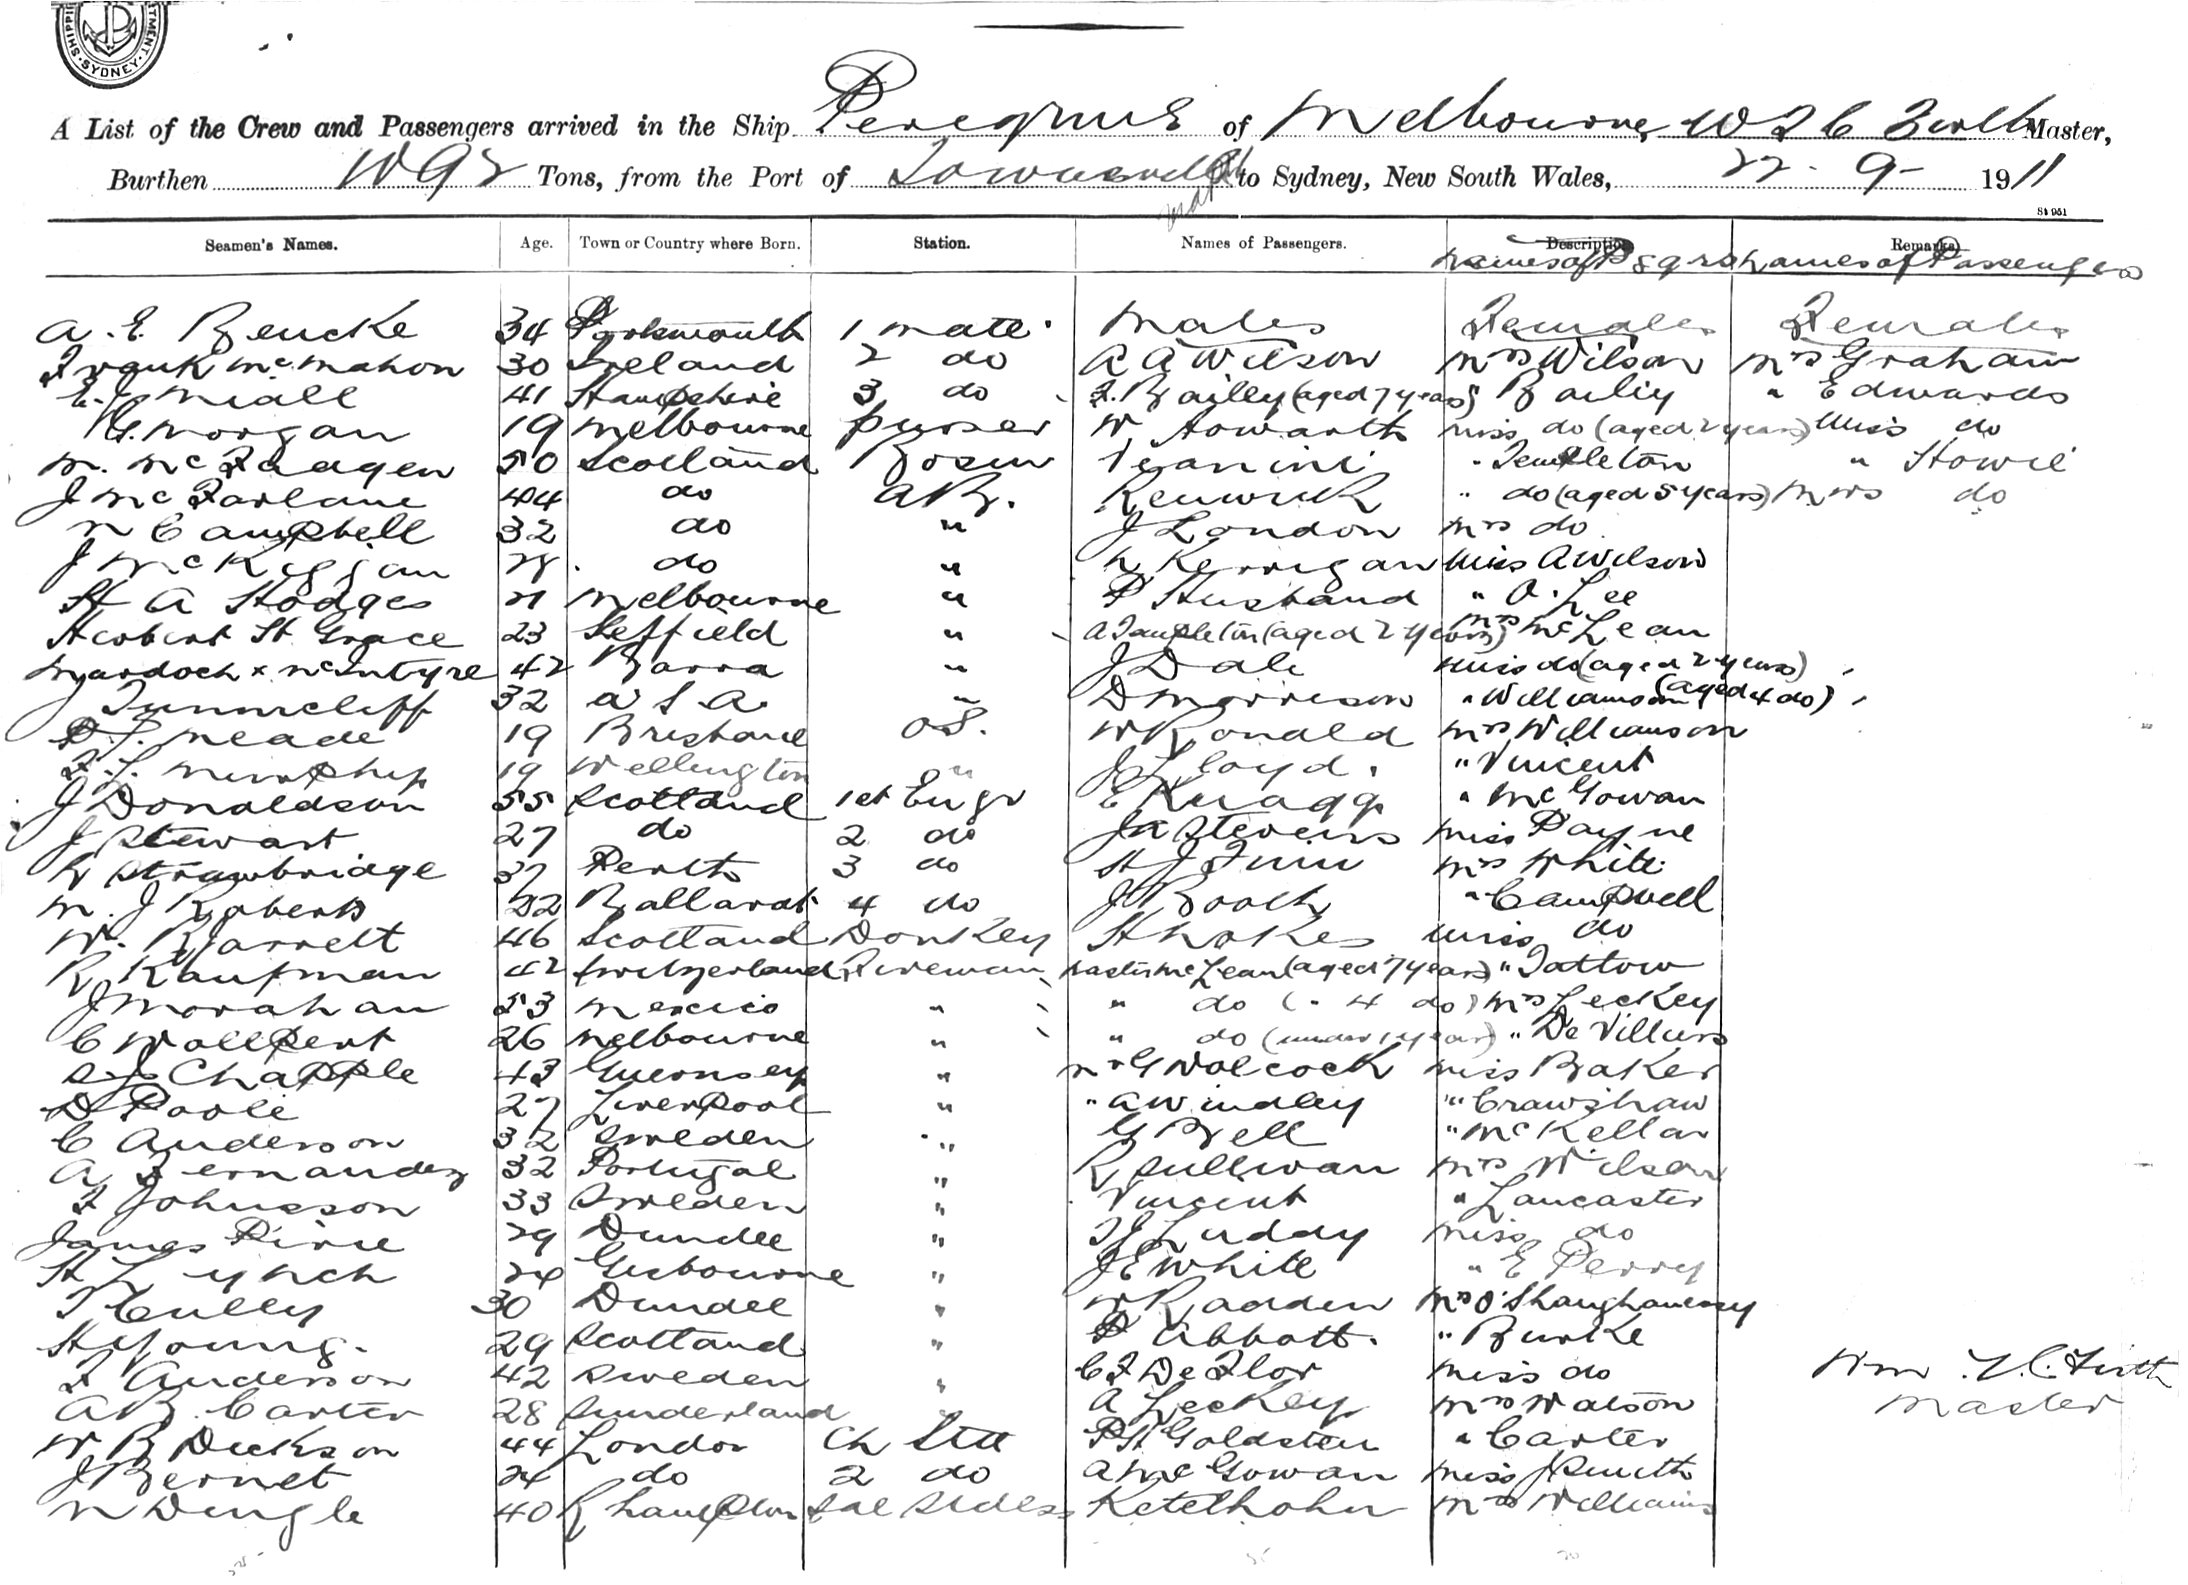 SHIPPI
TMENT
SYDNEY
A List of the Crew and Passengers arrived in the Ship Peregrine of Melbourne Master,
Burthen Tons, from the Port of Townsville to Sydney, New South Wales, 22 - 9 - 1911
St 951
Seamen's Names. Age. Town or Country where Born. Station. Names of Passengers. Description Remarks
Names of Psgrs Names of Passengers
A. E. Beucke 34 Portsmouth 1 mate Males Females Females
Frank McMahon 30 Ireland 2 do A A Wilson Mrs Wilson Mrs Graham
Niall 41 Hampshire 3 do F. Bailley (aged 7 years) " Bailiy " Edwards
G. Morgan 19 Melbourne purser W Howarth Miss do (aged 2 years) Miss do
M. McFadgen 50 Scotland Bosun " Templeton " Howie
J McFarlane 44 do AB. Renwick " do (aged 5 years) Mrs do
N Campbell 32 do " J London Mrs do
J McKiggan 28 do " Kerrigan Miss A Wilson
H A Hodges 21 Melbourne " P Husband " O. Lee
Herbert H. Grace 23 Seffield " A Templeton (aged 2 years) Mrs McLean
Murdoch x McIntyre 42 Barra " J Dale Miss do (aged 2 years)
J Tunnicliff 32 U S A " D Morrison " Williamson (aged 4 do)
Meade 19 Brisbane O.S. W Ronald Mrs Williamson
Murphy 19 Wellington " J Lloyd " Vincent
J Donaldson 55 Scotland 1st Engr E Knagg " McGowan
J Stewart 27 do 2 do J A Stevens Miss Payne
Strawbridge 37 Perth 3 do H J Mrs White
M. J Roberts 22 Ballarat 4 do J Booth " Campbell
W. Barrett 46 Scotland Donkey H Miss do
R Kaufman 42 Switzerland Fireman Master McLean (aged 7 years) " Tattow
J Morahan 53 Mexico " " do ( " 4 do) Mrs Leckey
C Wallpert 26 Melbourne " " do (under 1 year) " De Villiers
Chapple 43 Guernsey " Mr G Wolcock Miss Baker
D Poole 27 Liverpool " " A Windley " Crawshaw
C Anderson 32 Sweden " G Bell " McKellar
A Fernandez 32 Portugal " R Sullivan Mrs Wilson
F Johnsson 33 Sweden " Vincent " Lancaster
James Pirie 29 Dundee " Luddy Miss do
H Lynch 24 Gisbourne " J E White " E Perry
T Cully 30 Dundee " W Radden Mrs O'Shaughanessy
H Young 29 Scotland " P Abbott. " Burke
F Anderson 42 Sweden " C F De Flor Miss do
A B Carter 28 Sunderland " A Leckey Mrs Watson
W B Dickson 44 London Ch Std P H Goldstein " Carter
J Bernet 24 do 2 do A McGowan Miss J Smith
N Dingle 40 R hampton Ketelhohn Mrs Williams
Wm. T. C. Firth
Master